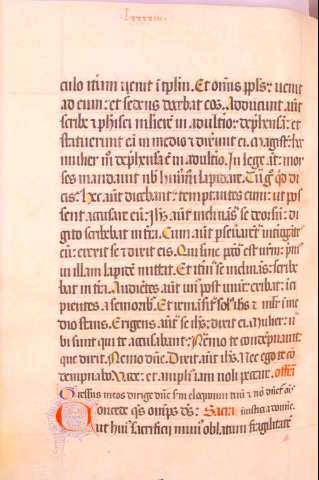 culo iterum uenit i templum. Et omnis ppls uenit
ad eum: et sedens docebat eos. Adducunt aut
scribe ⁊ pharisei mulierē in adulterio: dephensā: et
statuerunt eā in medio ⁊ dixerunt ei. Magist: hec
mulier m̄ dephensa ē in adulterio. In lege aūt moy
ses mandauit nob huiusmōi lapidare. Tu g° qd di
cis: hec aūt dicebant: temptantes eum: ut pos
sent accusare eū: Ihs aūt inclinās se deorsū: di
gito scribebat in tra. Cum aūt pseuerarēt ītrogātes
eū: erexit se ⁊ dixit eis. Qui sine pctō est urm: pus
in illam lapidē mittat. Et itū se inclinās: scribe
bat in tra. Audiētes aūt un post unū exibāt: īci
pientes a seniorib. Et remāsit sol ihs ⁊ mlr ī me
dio stans. Erigens aūt se ihs: dixit ei. Mulier: u
bi sunt qui te accusabant: Nemo te condēpnauit:
que dixit. Nemo dn̄e. Dixit aūt ihs. Nec ego te cō
dempnabo. Uade: et amplius iam noli peccare. offm
Gressus meos dirige dn̄e
Concede qs omps ds: Sacra
aut huius sacrificii munus oblatum fragilitatē